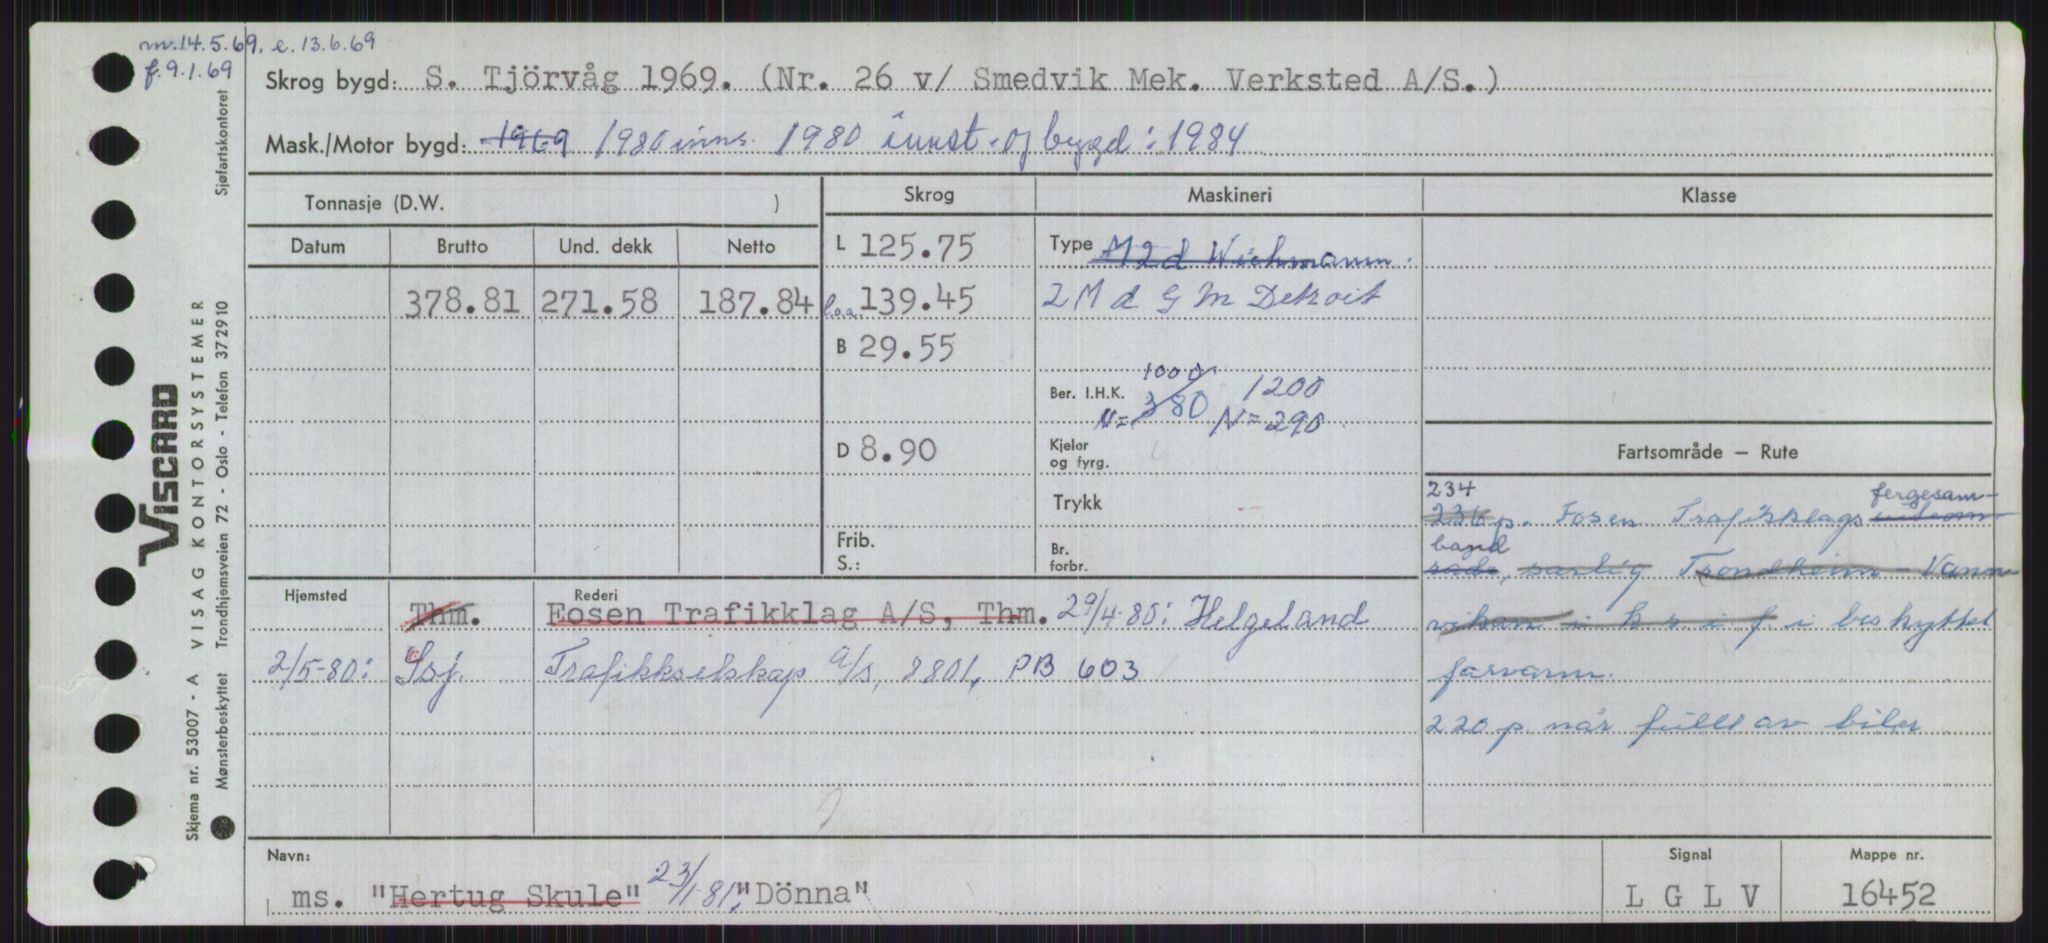 m. 14.5.69, e. 13.6.69
f. 9.1.69
Skrog bygd: S. Tjörvåg 1969. (Nr. 26 v/ Smedvik Mek. Verksted A/S.)
Mask./Motor bygd: 1969 1980 inns. 1980 innst. og bygd: 1984
Tonnasje (D.W. )
Skrog
Maskineri
Klasse
Datum Brutto Und. dekk Netto
378.81 271.58 187.84
L 125.75
l.o.a. 139.45
B 29.55
D 8.90
Frib.
S.:
Type M 2 d Wichmann.
2 M d G M Detroit
1000 1200
Ber. I.H.K.
N= 380 N= 290
Kjeler
og fyrg.
Trykk
Br.
forbr.
Fartsområde — Rute
234 fergesam-
236 p. Fosen Trafikklags
band
særlig Trondheim - Vann-
vikan i k s i f i beskyttet
farvann.
220 p når fullt av biler
Hjemsted Rederi
Thm. Fosen Trafikklag A/S, Thm. 29/4-80: Helgeland
2/5-80: Ssj. Trafikkselskap a/s, 8801, PB 603
Navn:
ms. "Hertug Skule" 23/1-81: "Dönna"
Signal
L G L V
Mappe nr.
16452
VISCARD
Skjema nr. 53007 - A VISAG KONTORSYSTEMER
Mønsterbeskyttet Trondhjemsveien 72 - Oslo - Telefon 372910
Sjøfartskontoret